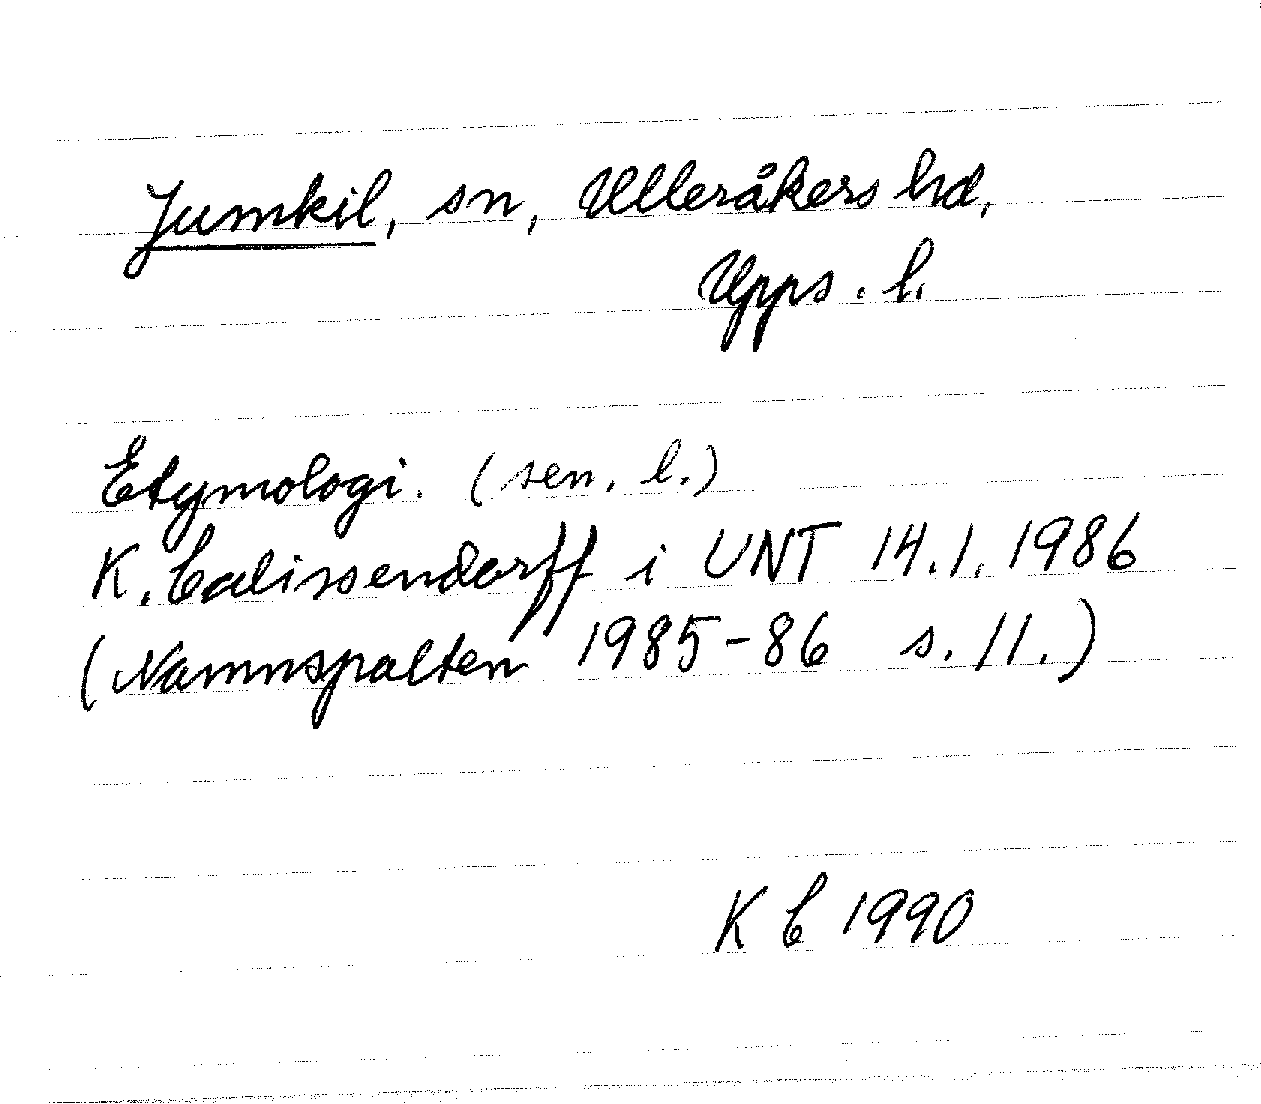 Jumkil, sn, Ulleråkers hd,
Upps. l.
Etymologi. (sen. l.)
K. Calissendorff i UNT 14.1.1986
(Namnspalten 1985-86 s. 11.)
K C 1990